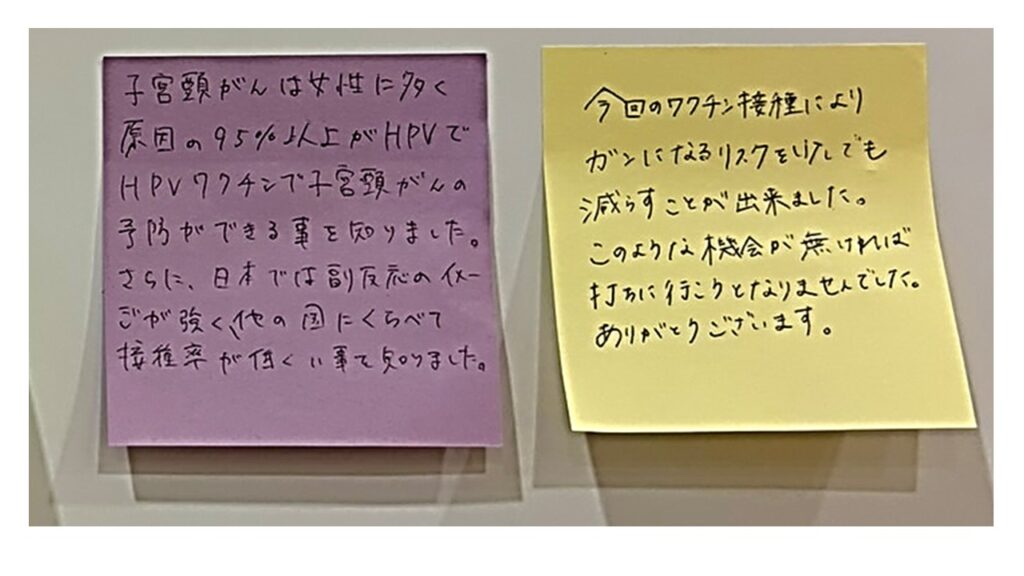 子宮頸がんは女性に多く
原因の95%以上がHPVで
HPVワクチンで子宮頸がんの
予防ができる事を知りました。
さらに、日本では副反応のイメー
ジが強く、他の国にくらべて
接種率が低い事を知りました。
今回のワクチン接種により
ガンになるリスクを少しでも
減らすことが出来ました。
このような機会が無ければ
打ちに行こうとなりませんでした。
ありがとうございます。